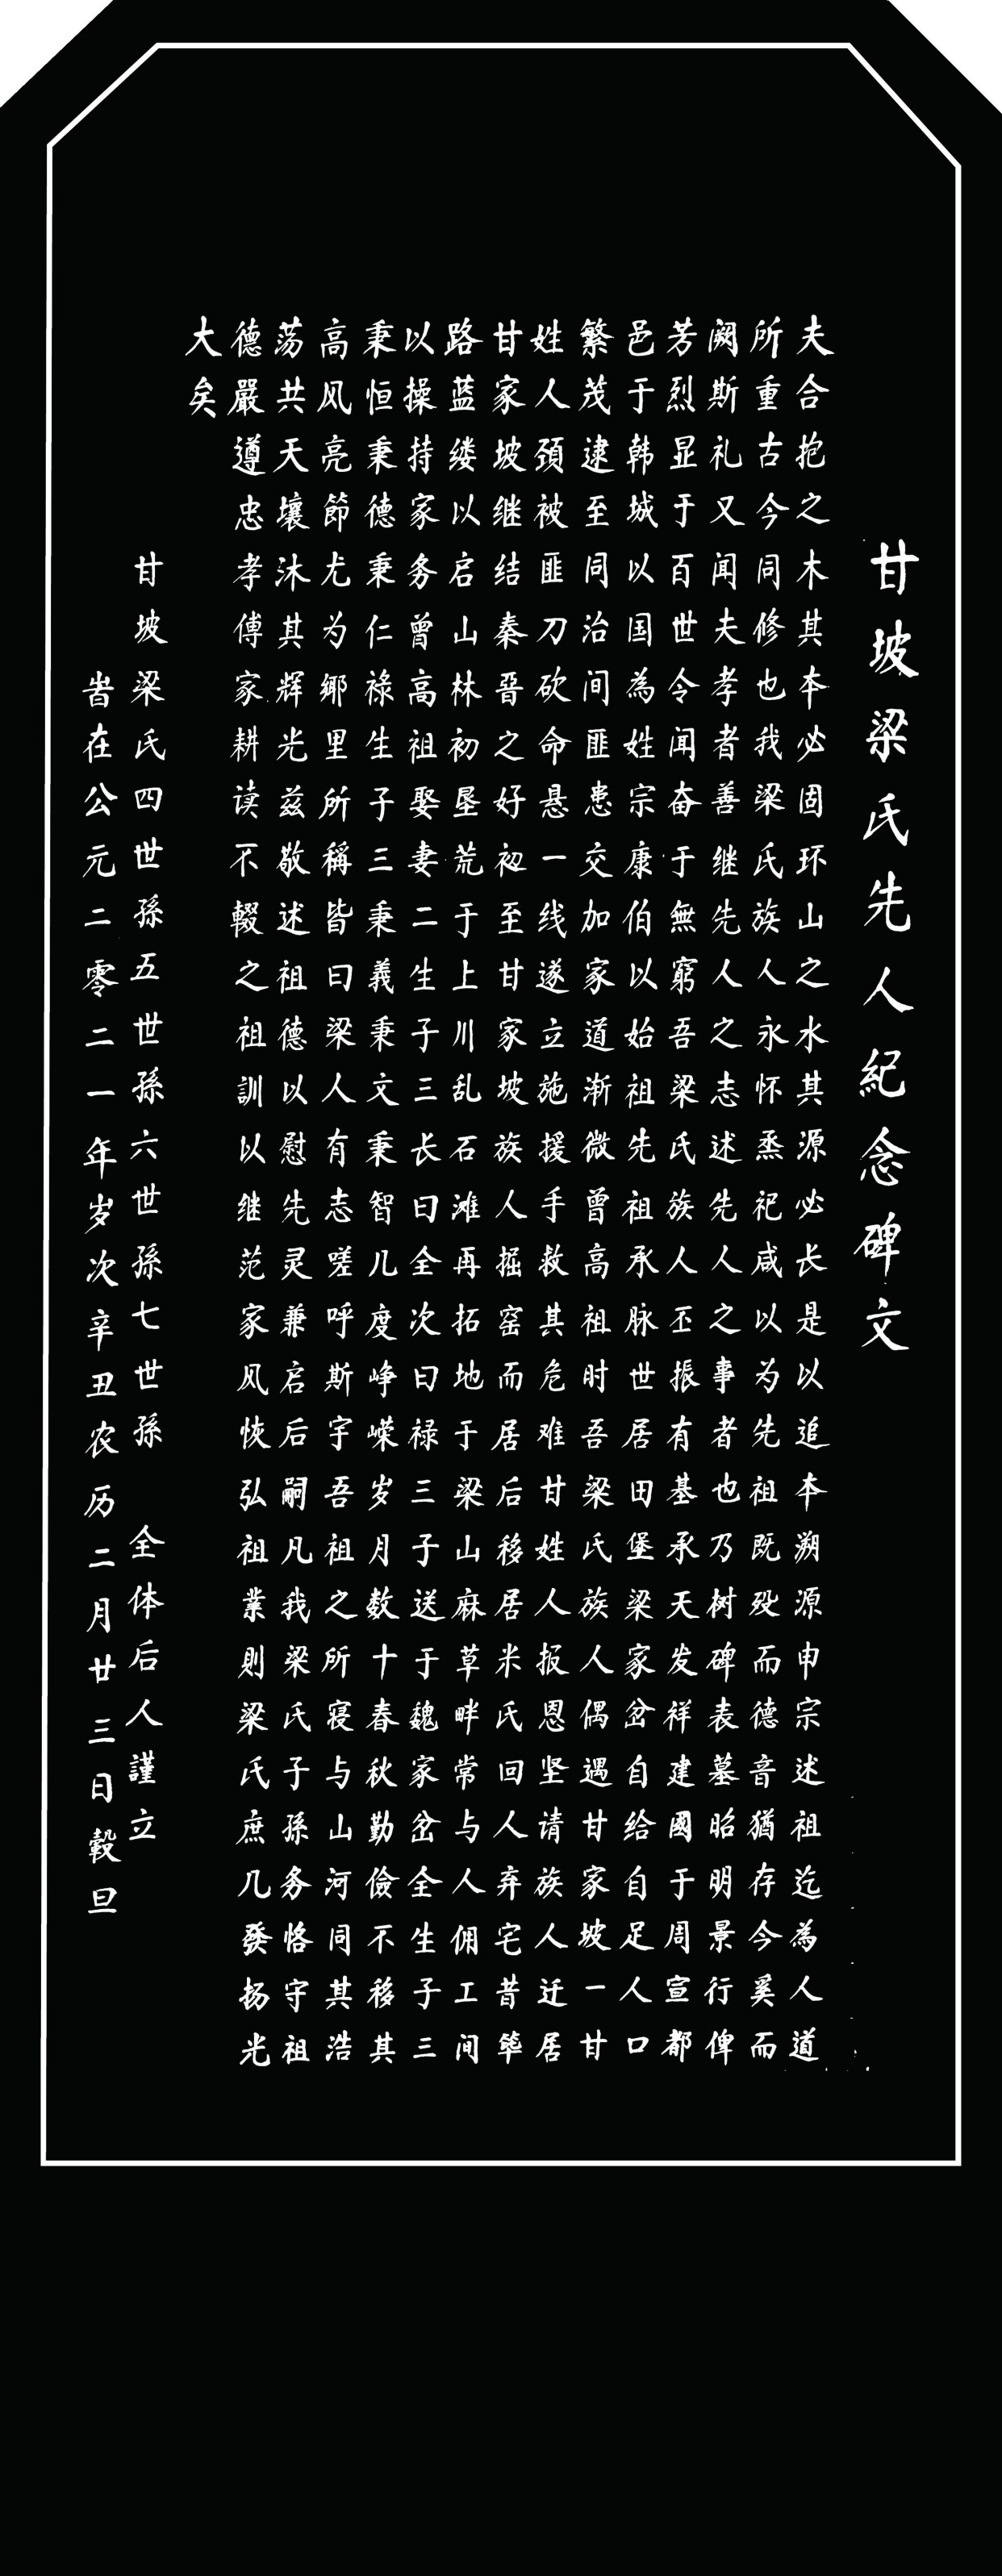 甘坡梁氏先人紀念碑文
夫合抱之木其本必固环山之水其源必长是以追本溯源申宗述祖迄為人道
所重古今同修也我梁氏族人永怀烝祀咸以为先祖既殁而德音猶存今奚而
阙斯礼又闻夫孝者善继先人之志述先人之事者也乃树碑表墓昭明景行俾
芳烈显于百世令闻奋于無窮吾梁氏族人丕振有基承天发祥建國于周宣都
邑于韩城以国為姓宗康伯以始祖先祖承脉世居田堡梁家岔自给自足人口
繁茂逮至同治间匪患交加家道渐微曾高祖时吾梁氏族人偶遇甘家坡一甘
姓人颈被匪刀砍命悬一线遂立施援手救其危难甘姓人报恩坚请族人迁居
甘家坡继结秦晋之好初至甘家坡族人掘窑而居后移居米氏回人弃宅昔筚
路蓝缕以启山林初垦荒于上川乱石滩再拓地于梁山麻草畔常与人佣工间
以操持家务曾高祖娶妻二生子三长曰全次曰禄三子送于魏家岔全生子三
秉恒秉德秉仁祿生子三秉義秉文秉智儿度峥嵘岁月数十春秋勤儉不移其
高风亮節尤为鄉里所稱皆曰梁人有志嗟呼斯宇吾祖之所寝与山河同其浩
荡共天壤沐其辉光兹敬述祖德以慰先灵兼启后嗣凡我梁氏子孫务恪守祖
德嚴遵忠孝傳家耕读不輟之祖訓以继范家风恢弘祖業則梁氏庶几發扬光
大矣
甘坡梁氏四世孫五世孫六世孫七世孫 全体后人謹立
旹在公元二零二一年岁次辛丑农历二月廿三日毂旦